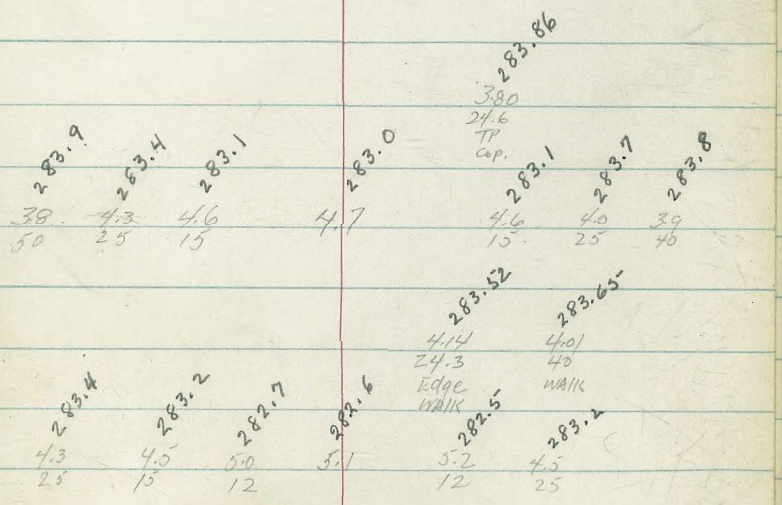 283.86
3.80
24.6
TP
Cop.
283.9 283.4 283.1 283.0 283.1 283.7 283.8
3.8 4.3 4.6 4.7 4.6 4.0 3.9
50 25 15 15 25 40
283.52 283.65
4.14 4.01
24.3 40
Edge WALK
WALK
283.4 283.2 282.7 282.6 282.5 283.2
4.3 4.5 5.0 5.1 5.2 4.5
25 15 12 12 25